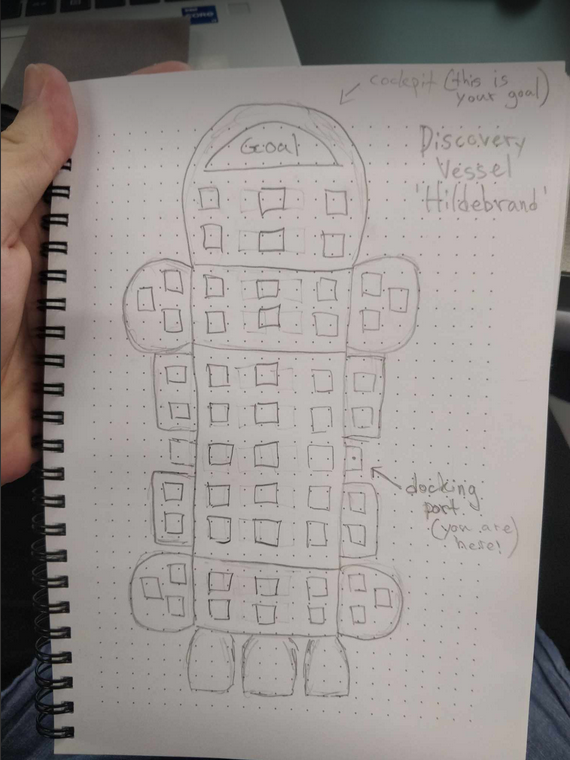 CORE
cockpit (this is
your goal)
Goal
Discovery
Vessel
'Hildebrand'
docking
port
(you are)
here!